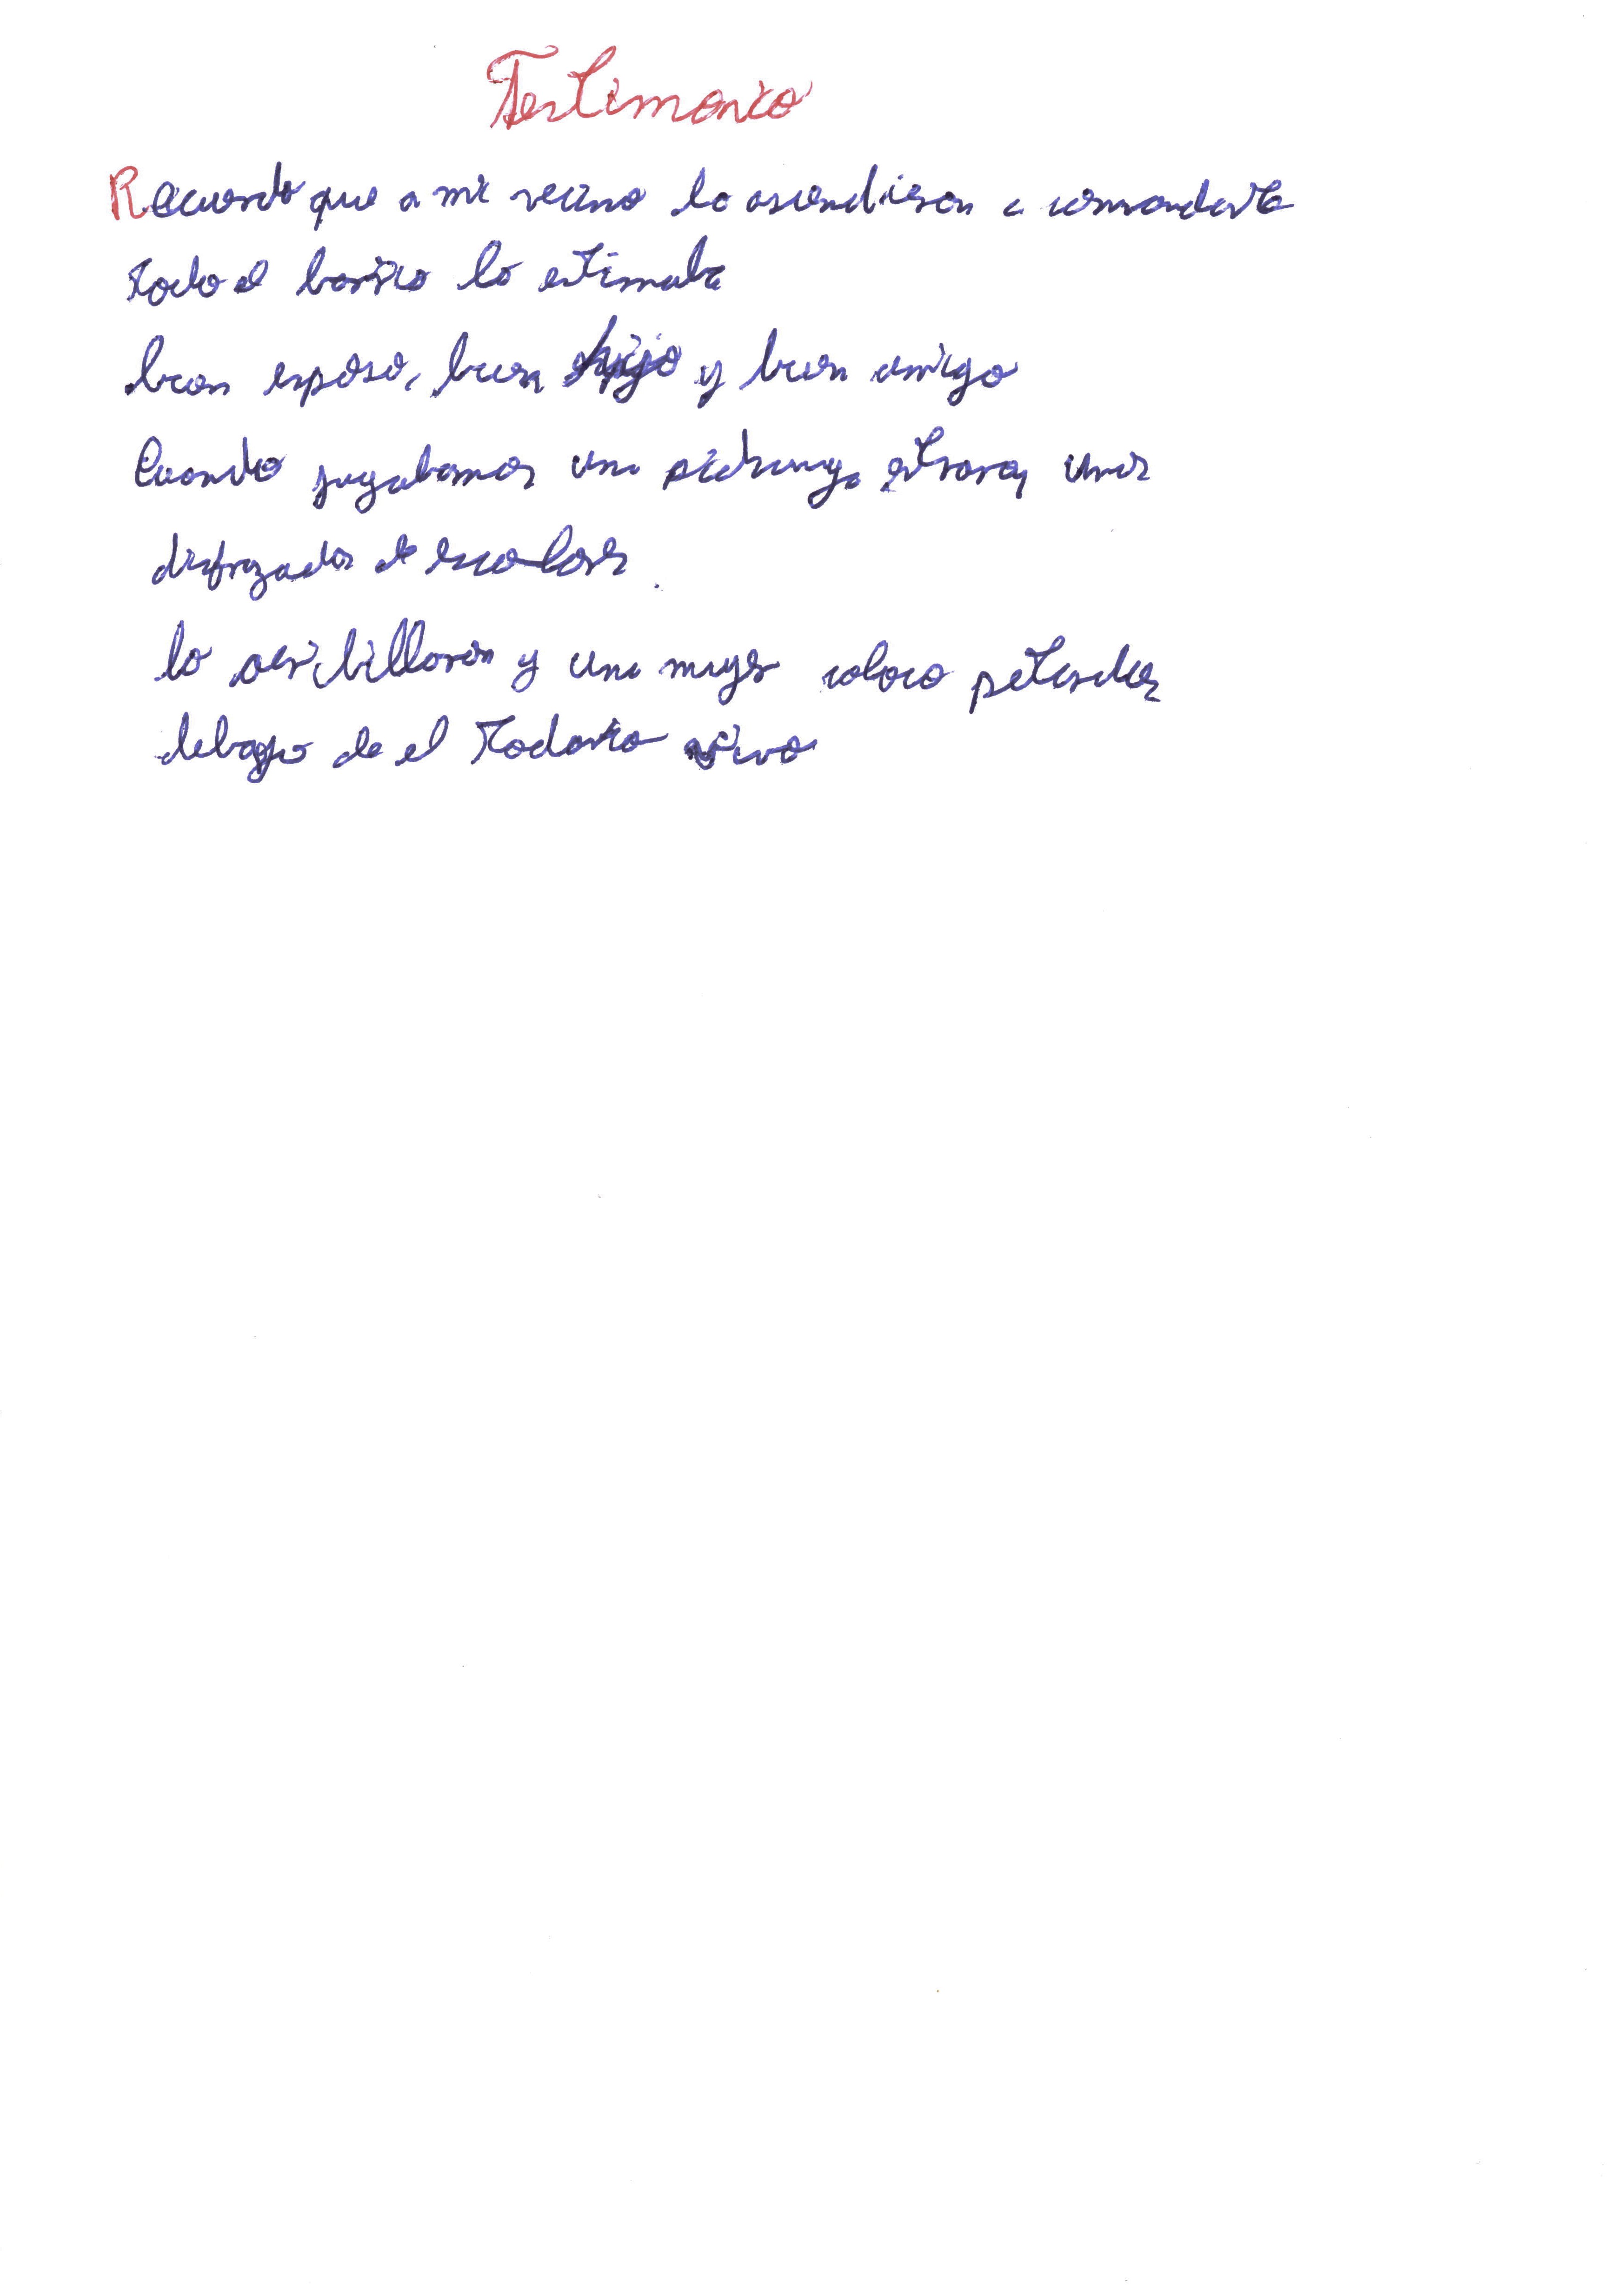 Testimonio
Recuerdo que a mi vecino lo ascendieron a comandante
todo el barrio lo estimaba
buen esposo, buen hijo y buen amigo
Cuando jugabamos una pichanga entraron unos
disfrazados de escolares
lo acribillaron y una mujer coloco petardos
debajo de el Todavia vivo